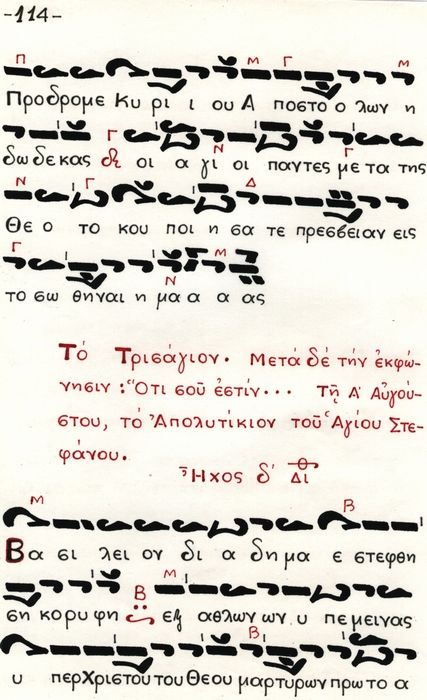 -114-
Π Μ Γ Μ
Προδρομε Κυ ρι ι ου Α ποστο ο λων η
Γ Ν Γ
δωδεκας οι α γι οι παντες με τα της
Ν Γ Δ
Θε ο το κου ποι η σα τε πρεσβειαν εις
Γ Ν Μ
το σω θηναι η μα α α ας
Τό Τρισάγιον. Μετά δέ τήν ἐκφώ-
νησιν: Ὅτι σοῦ ἐστίν... Τῇ Α' Αὐγού-
στου, τό Ἀπολυτίκιον τοῦ Ἁγίου Στε-
φάνου.
Ἦχος δ' Δι
Μ Β
Βα σι λει ον δι α δη μα ε στεφθη
Β Μ
ση κορυφη εξ αθλων ων υ πεμεινας
Β
υ περ Χριστου του Θεου μαρτυρων πρω το α